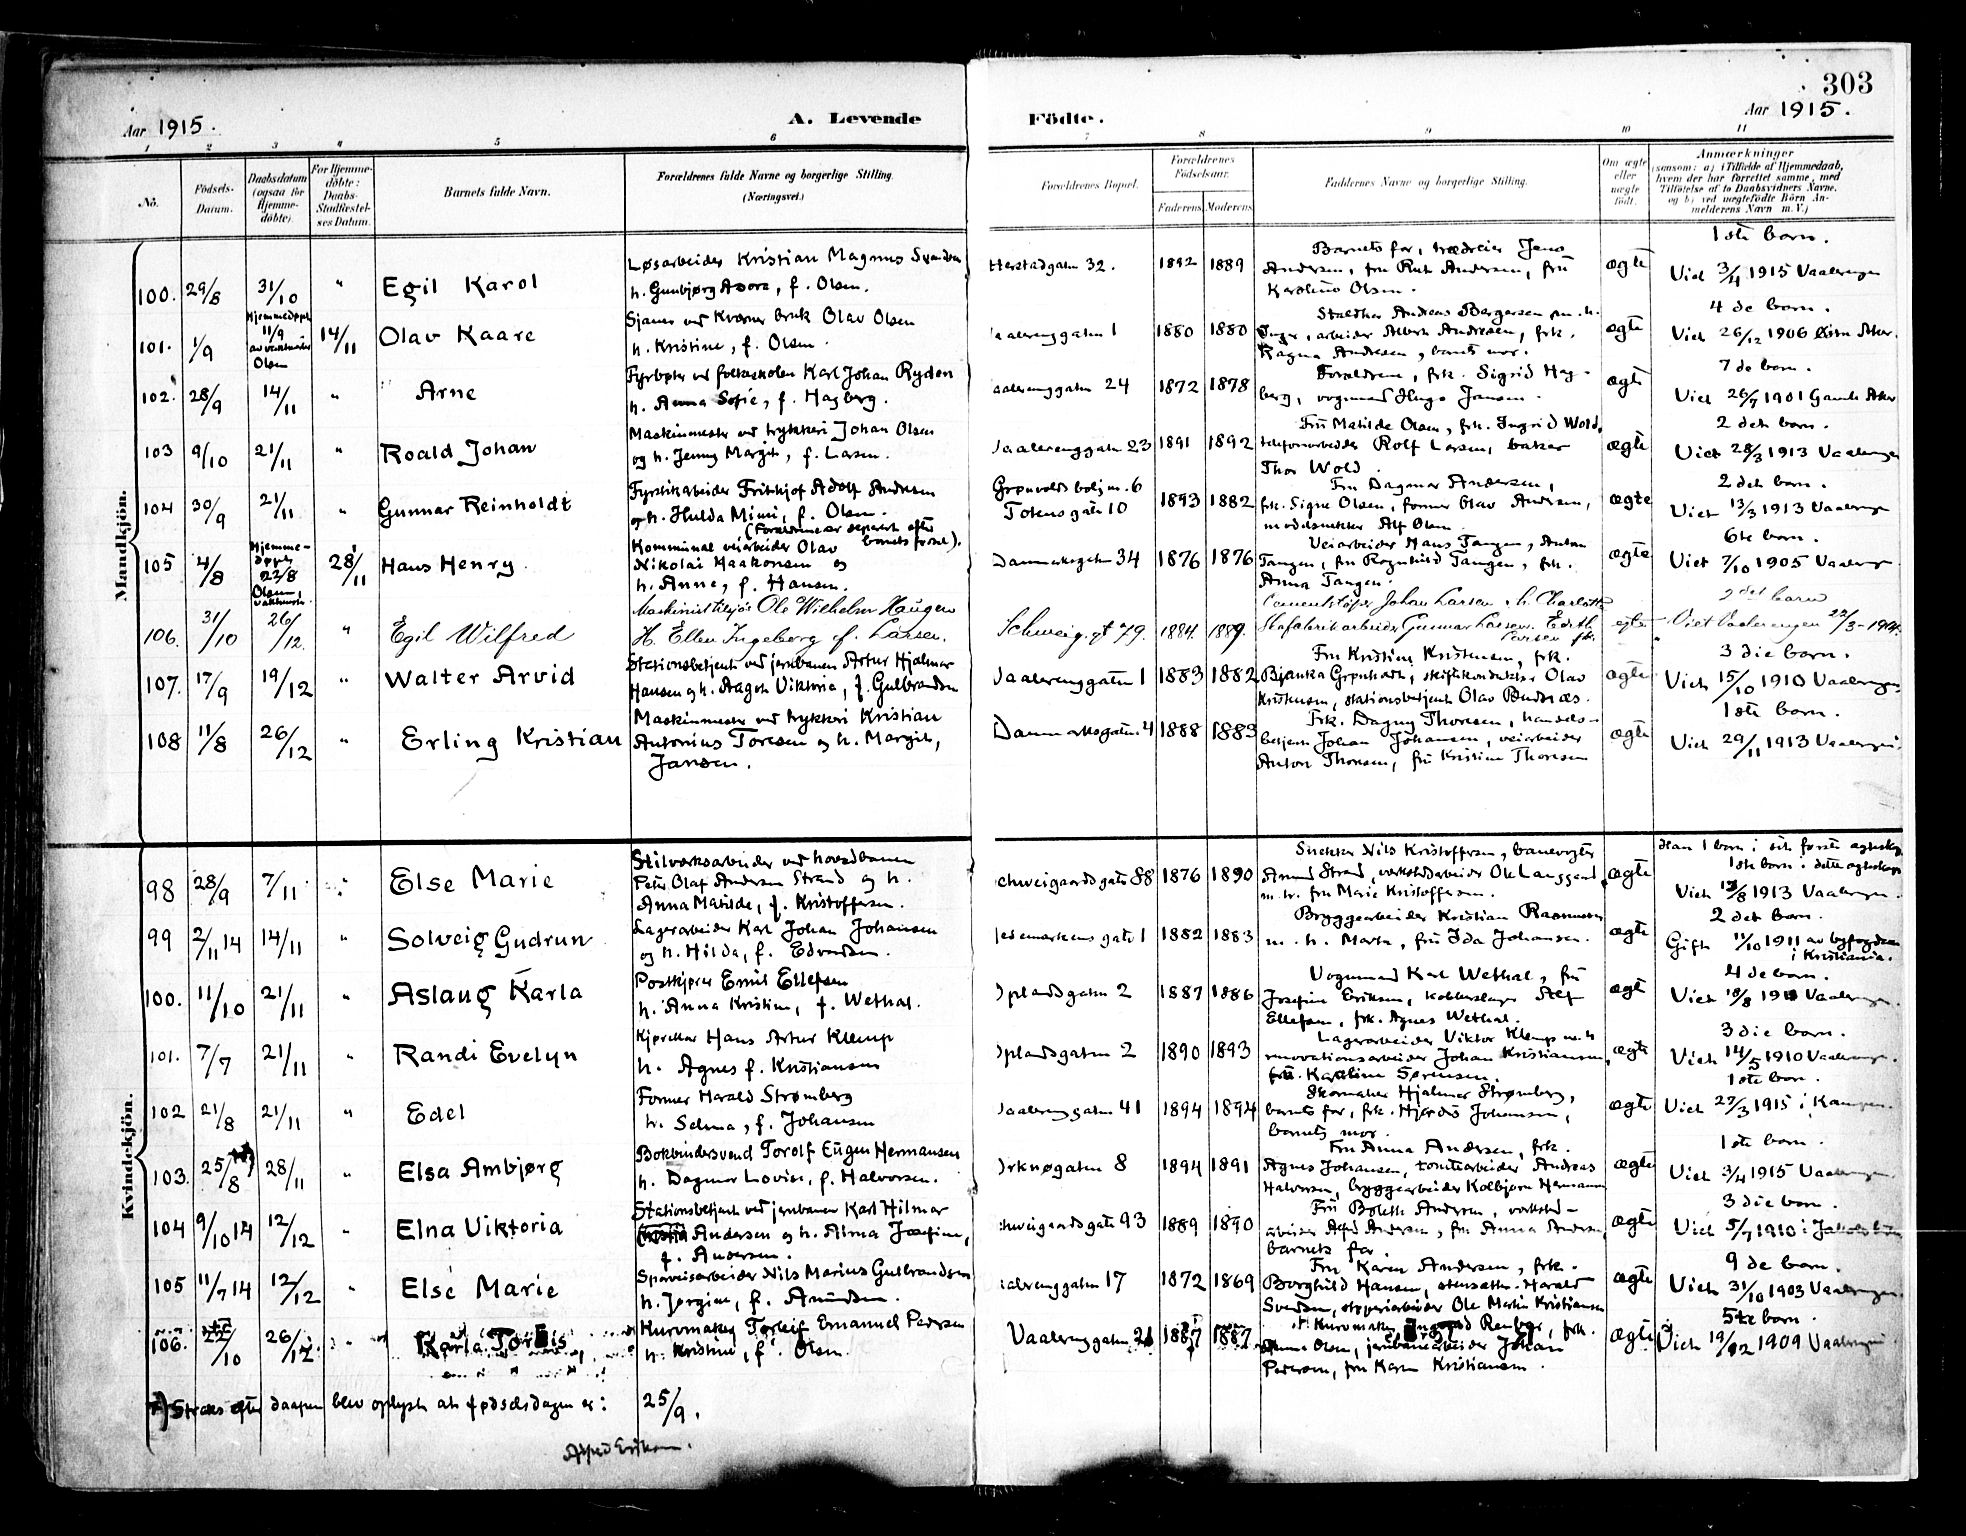 303
Aar 1915.
A. Levende
Födte.
Aar 1915.
1 2 3 4 5 6 7 8 9 10 11
No.
Födsels-Datum.
Daabsdatum (ogsaa for Hjemme-döbte).
For Hjemme-döbte: Daabs-Stadfæstel-ses Datum.
Barnets fulde Navn.
Forældrenes fulde Navne og borgerlige Stilling. (Næringsvei.)
Forældrenes Bopæl.
Forældrenes Födselsaar.
Faderens Moderens
Faddernes Navne og borgerlige Stilling.
Om ægte eller uægte födt.
Anmærkninger
(saasom: a) i Tilfælde af Hjemmedaab, hvem der har forrettet samme, med Tilföielse af to Daabsvidners Navne. og b) ved uægtefödte Börn An-melderens Navn m. V.)
Mandkjön.
100. 29/8 31/10 " Egil Karol
Løsarbeider Kristian Magnus Svendsen
h. Gunbjørg Asora, f. Olsen.
32. 1892 1889
Barnets far, trædreier Jens
Andersen, fru Ruth Andersen, fru
Karoline Olsen.
ægte
1ste barn.
Viet 3/4 1915 Vaalerengen
101. 1/9 Hjemmedøpt 11/9 av vaktmester Olsen 14/11 Olav Kaare
Sjauer ved Kværner bruk Olav Olsen
h. Kristine, f. Olsen.
1 1880 1880
arbeider Albert Andresen, frk.
Ragna Andresen, barnets mor.
ægte
4de barn.
Viet 26/12 1906 Østre Aker.
102. 28/9 14/11 " Arne
Fyrbøter ved folkeskolen Karl Johan Ryden
h. Anna Sofie, f. Hagberg.
24 1872 1878
Forældrene, frk. Sigrid Hag-
berg, vognmand Hugo Jansen.
ægte
7de barn.
Viet 26/7 1901 Gamle Aker
103 9/10 21/11 " Roald Johan
Maskinmester ved trykkeri Johan Olsen
og h. Jenny Margit, f. Larsen.
Vaalerenggaten 23 1891 1892
Fru Matilde Olsen, frk. Ingrid Wold,
telefonarbeider Rolf Larsen, baker
Thor Wold.
ægte
2det barn.
Viet 28/3 1913 Vaalerengen
104 30/9 21/11 " Gunnar Reinholdt
Fyrstikarbeider Frithjof Adolf Andersen
og h. Hulda Mimi, f. Olsen.
(Forældrene er separert efter barnets fødsel).
Grønvolds bolig no. 6
Totensgate 10 1893 1882
Fru Dagmar Andersen,
frk. Signe Olsen, former Olav Andersen,
modelsnekker Alf Olsen.
ægte
2det barn.
Viet 13/3 1913 Vaalerengen
105 4/8 Hjemme-døpt 22/8 Olsen, vaktmester 28/11 Hans Henry
Kommunal veiarbeider Olav
Nikolai Haakonsen og
h. Anne, f. Hansen.
Danmarksgaten 34 1876 1876
Veiarbeider Hans Tangen, Anton
Tangen, fru Ragnhild Tangen, frk.
Anna Tangen.
ægte
6te barn.
Viet 7/10 1905 Vaalerengen
106. 31/10 26/12. " Egil Wilfred
Ole Wilhelm Haugen
H. Ellen Ingeborg f. Larsen.
Schweig. gt 79. 1884. 1889.
Johan Larsen, h. Charlotte
Gunnar Larsen. Edith
Larsen frk.
egte
2det barn
Viet Vaalerengen 22/3-
107. 17/9 19/12 " Walter Arvid
Stationsbetjent ved jernbanen Artur Hjalmar
Hansen og h. Aagot Viktoria, f. Gulbrandsen
Vaalerenggaten 1 1883 1882
Fru Kristine Kristensen, frk.
Bjanka Grønhart, skiftekonduktør Olav
Kristensen, stationsbetjent Olav
ægte
3die barn.
Viet 15/10 1910 Vaalerengen
108 11/8 26/12 " Erling Kristian
Maskinmester ved trykkeri Kristian
Antonius Toresen og h. Margit,
Jansen.
Danmarksgaten 4 1888 1883
Frk. Dagny Thoresen, handels-
betjent Johan Johansen, veiarbeider
Anton Thoresen, fru Kristine Thoresen
ægte
1ste barn.
Viet 29/11 1913 Vaalerengen.
Kvindekjön.
98 28/9 7/11 " Else Marie
Stilverksarbeider ved hovedbanen
Peter Olaf Andersen Strand og h.
Anna Matilde, f. Kristoffersen.
Schweigaardsgate 88 1876 1890
Snekker Nils Kristoffersen, banevogter
Amund Strand, verkstedarbeider Ole Langgaard
m. h. fru Marie Kristoffersen.
ægte
Han 1 barn i sit første egteskap
1ste barn i dette egteskap
Viet 13/8 1913 Vaalerengen.
99 2/11 14 14/11 " Solveig Gudrun
Lagerarbeider Karl Johan Johansen
og h. Hilda, f. Edvardsen.
Hedemarkens gate 1 1882 1883
Bryggearbeider Kristian Rasmussen
m. h. Marta, fru Ida Johansen.
ægte
2det barn.
Gift 11/10 1911 av byfogden
i Kristiania.
100. 11/10 21/11 " Aslaug Karla
Postkjører Emil Ellefsen
h. Anna Kristine, f. Wethal.
Oplandsgaten 2 1887 1886
Vognmand Karl Wethal, fru
Josefine Eriksen, kobberslager Alf
Ellefsen, frk. Agnes Wethal.
ægte
4de barn.
Viet Vaalerengen.
101. 7/7 21/11 " Randi Evelyn
Kjørekar Hans Artur Klemp
h. Agnes f. Kristiansen
Oplandsgaten 2 1890 1893
Lagerarbeider Viktor Klemp m. h
renovationsarbeider Johan Kristiansen,
fru. Karoline Sørensen.
ægte
3die barn.
Viet 14/5 1910 Vaalerengen.
102 21/8 21/11 " Edel
Former Harald Strømberg
h. Selma, f. Johansen
Vaalerenggaten 41 1894 1894
Skomaker Hjalmar Strømberg,
barnets far, frk. Hjørdis Johansen,
barnets mor.
ægte
1ste barn.
Viet 27/3 1915 i Kampen.
103. 25/8 28/11 " Elsa Ambjørg
Bokbindersvend Torolf Eugen Hermansen
h. Dagmar Lovise, f. Halvorsen.
Orknøgaten 8 1894 1891
Fru Anna Andersen, frk.
Agnes Johansen, tomtearbeider Andreas
Halvorsen, bryggearbeider Kolbjørn Hermansen
ægte
1ste barn.
Viet 3/4 1915 Vaalerengen
104 9/10 14 12/12 " Elna Viktoria
Stationsbetjent ved jernbanen Karl Hilmar
Andersen og h. Alma Josefine,
f. Andersen.
Schweigaardsgate 93 1889 1890
Fru Bolette Andersen, verksted-
arbeider Alfred Andersen, fru Anna Andersen,
barnets far.
ægte
3die barn.
Viet 5/7 1910 i Jakobs kirke
105 11/7 14 12/12 " Else Marie
Sporveisarbeider Nils Marius Gulbrandsen
h. Jørgine, f. Amundsen.
Vaalerenggaten 17 1872 1869
Fru Karen Andersen, frk.
Borghild Hansen, stensætter Harald
Svendsen, støperiarbeider Ole Martin Kristiansen
ægte
9de barn.
Viet 31/10 1903 Vaalerengen
106. 22/10 26/12 " Karla Tordis
Kurvmaker Torleif Emanuel Pedersen
h. Kristine, f. Olsen
Vaalerenggaten 21 1887 1887
Kurvmaker Renberg, frk.
Anna Olsen, jernbanearbeider Johan
Pedersen, fru Karen Kristiansen.
ægte
5te barn.
Viet 19/12 1909 Vaalerengen
*) Straks efter daapen blev oplyst at fødselsdagen er: 25/9.
Alfred Eriksen.